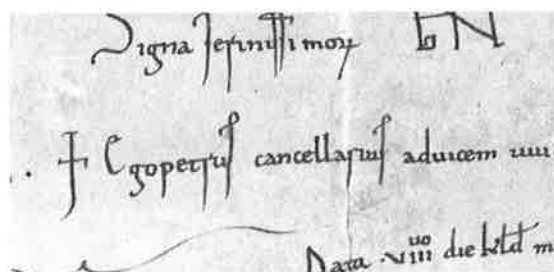 Signa serinissimoꝝ
✝ Ego petrus cancellarius advicem
Data .VIIII uo die kl̄d m